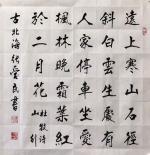 遠上寒山石徑
斜白雲處有
人家停車坐愛
楓林晚霜葉紅
於二月花
杜牧詩
山行
古北海愛民書